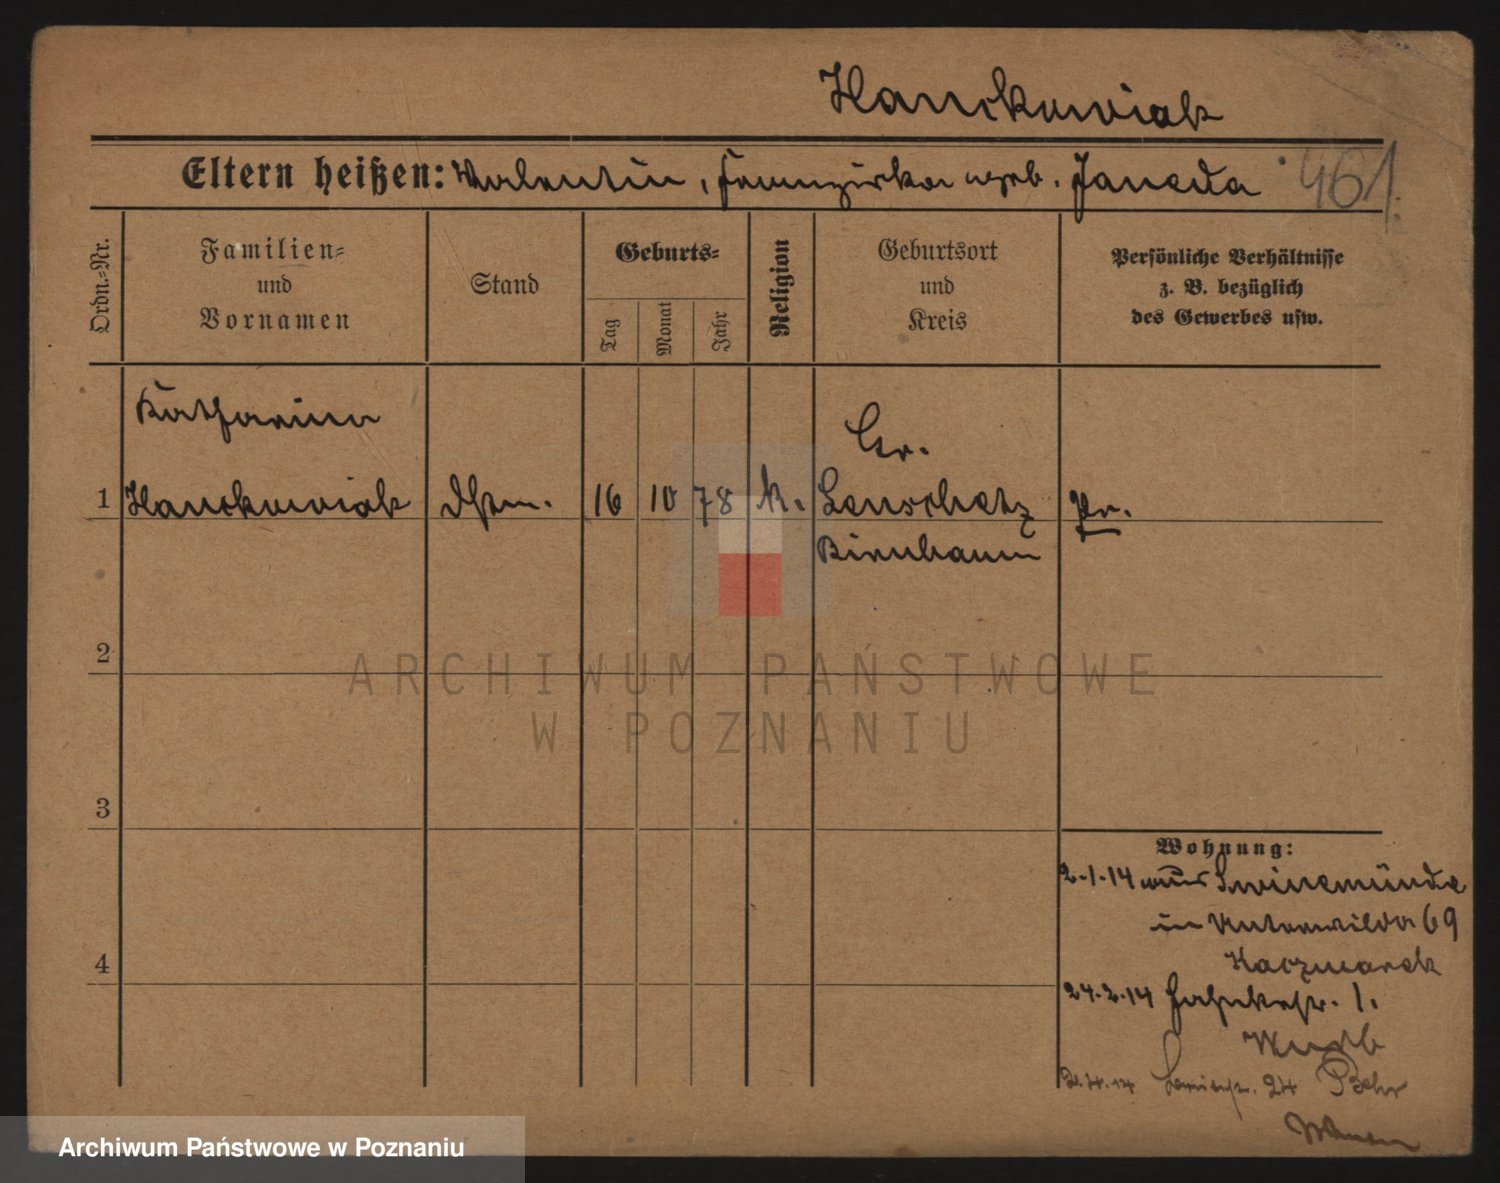 Hanckowiak
Eltern heißen: Valentin, Franziska geb. Janeda
461
Ordn.-Nr.
Familien-
und
Vornamen
Stand
Geburts-
Tag
Monat
Jahr
Religion
Geburtsort
und
Kreis
Persönliche Verhältnisse
z. B. bezüglich
des Gewerbes usw.
Katharina
1 Hanckowiak Dstm. 16 10 78 k. Gr. Lenschetz Pr.
Birnbaum
2
ARCHIWUM PAŃSTWOWE
W POZNANIU
3
4
Wohnung:
2.1.14 aus Swinemünde
in Unterwilda 69
Kaczmarek
24.2.14 1.
24 Behr
Archiwum Państwowe w Poznaniu